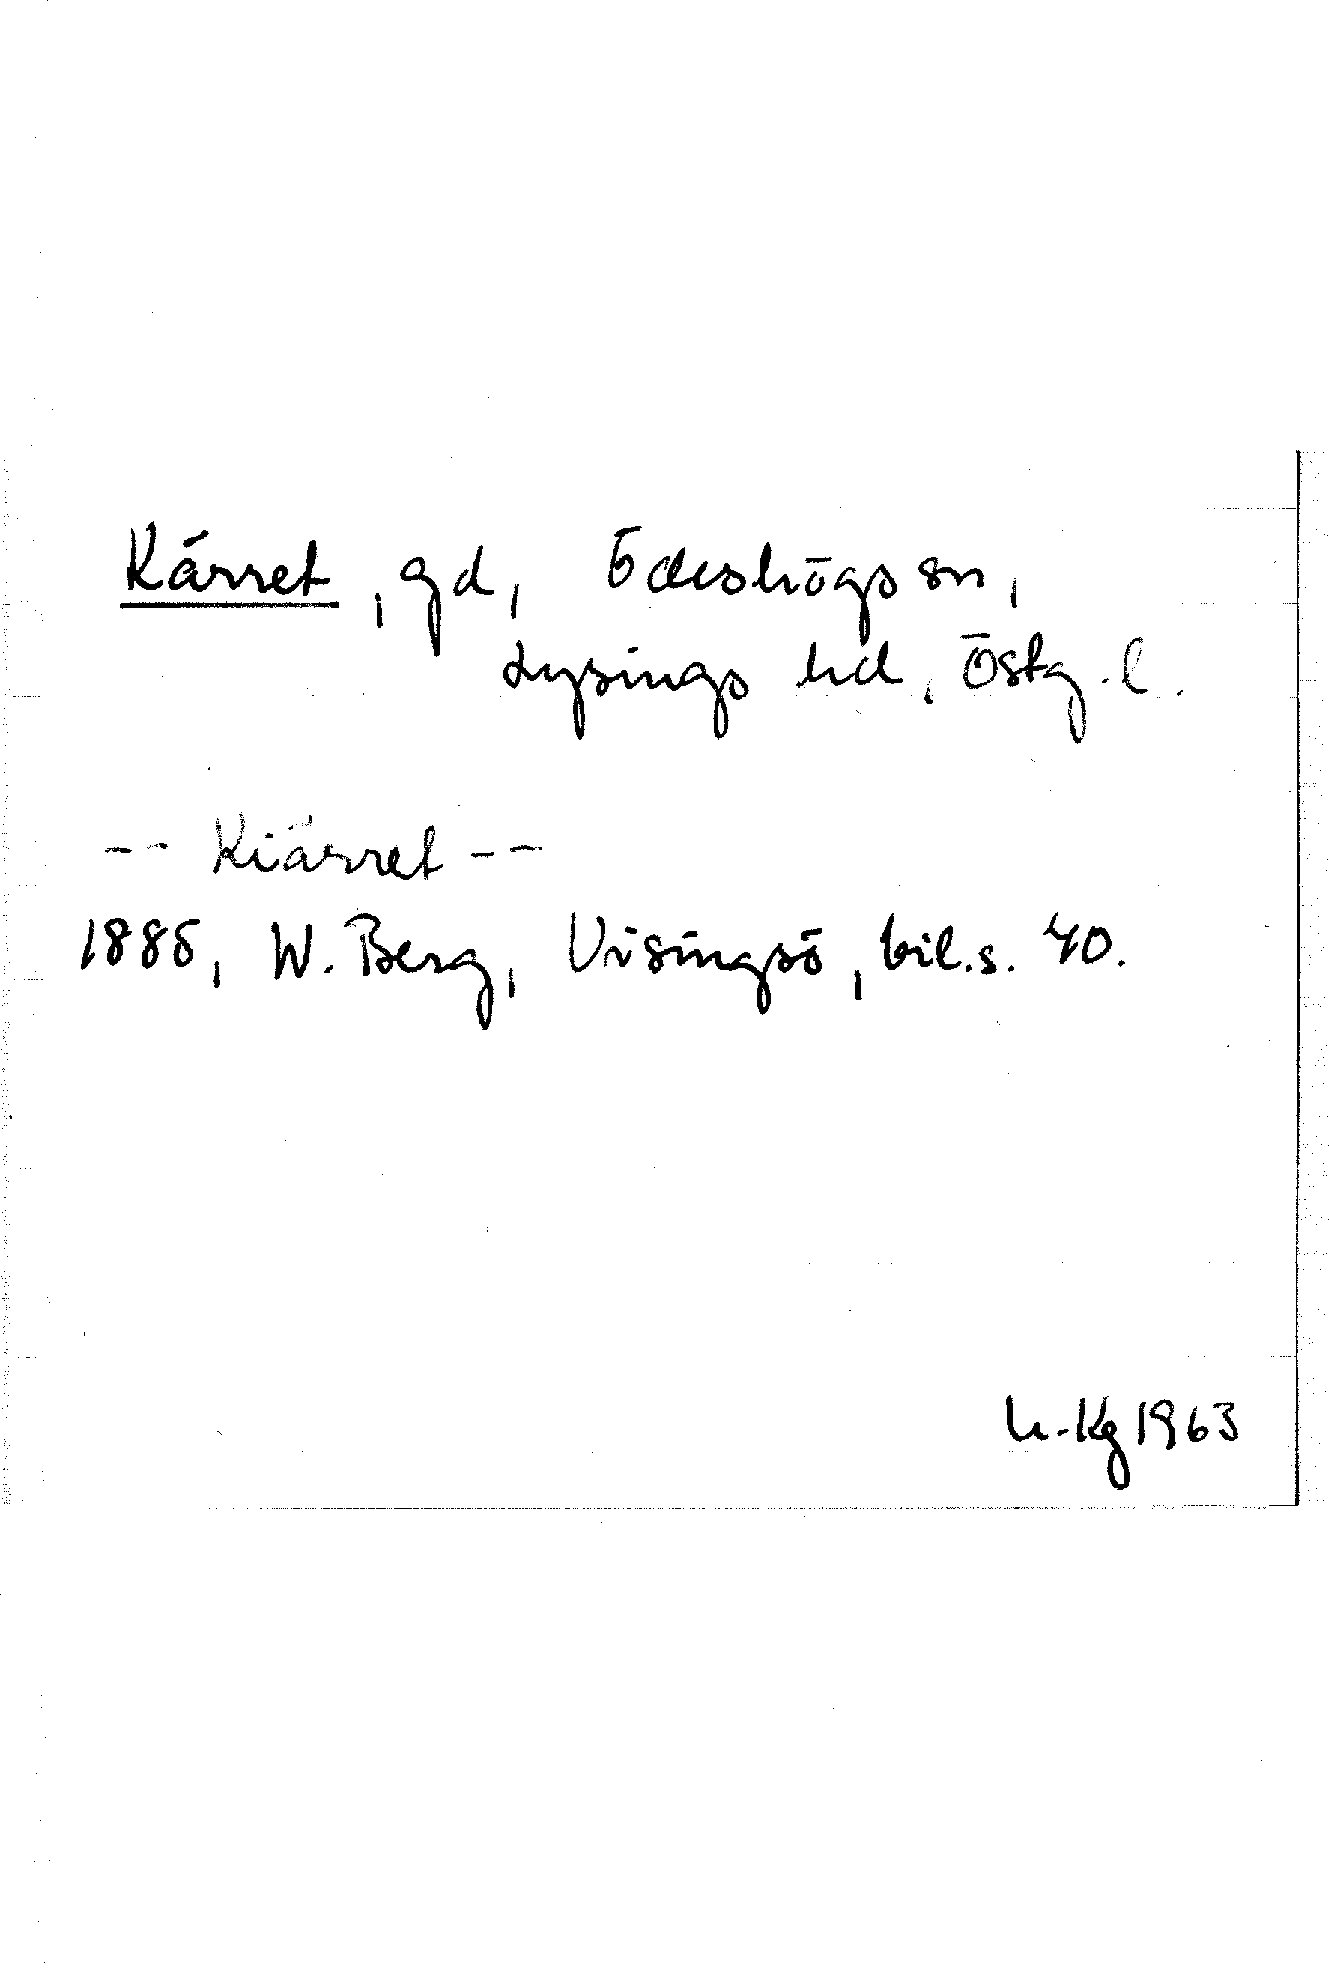 Kärret, gd, Ödeshögs sn,
Lysings hd, Östg.l.
-- Kiärret --
1885, W. Berg, Visingsö, bil.s. 40.
U.-Kg 1963